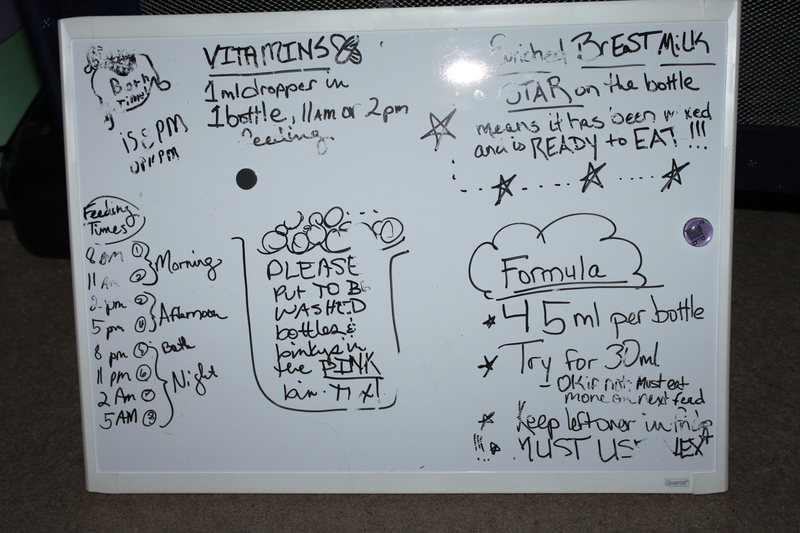 Bath
Time!
is 8 PM
or 11 PM
VITAMINS
1 ml dropper in
1 bottle, 11 AM or 2 pm
Feeding
Enriched BrEaST MiLK
STAR on the bottle
means it has been mixed
and is READY to EAT !!!
Feeding
Times
8 am 1
11 Am 2
Morning
2 pm 3
5 pm 4
Afternoon
8 pm 5 Bath
11 pm 6
2 Am 7
5 AM 8
Night
PLEASE
PUT TO BE
WASHED
bottles &
in
the PINK
bin
Formula
45 ml per bottle
Try for 30ml
OK if not. Must eat
more on next feed
Keep leftover in fridge
MUST USE NEXT
Quartet